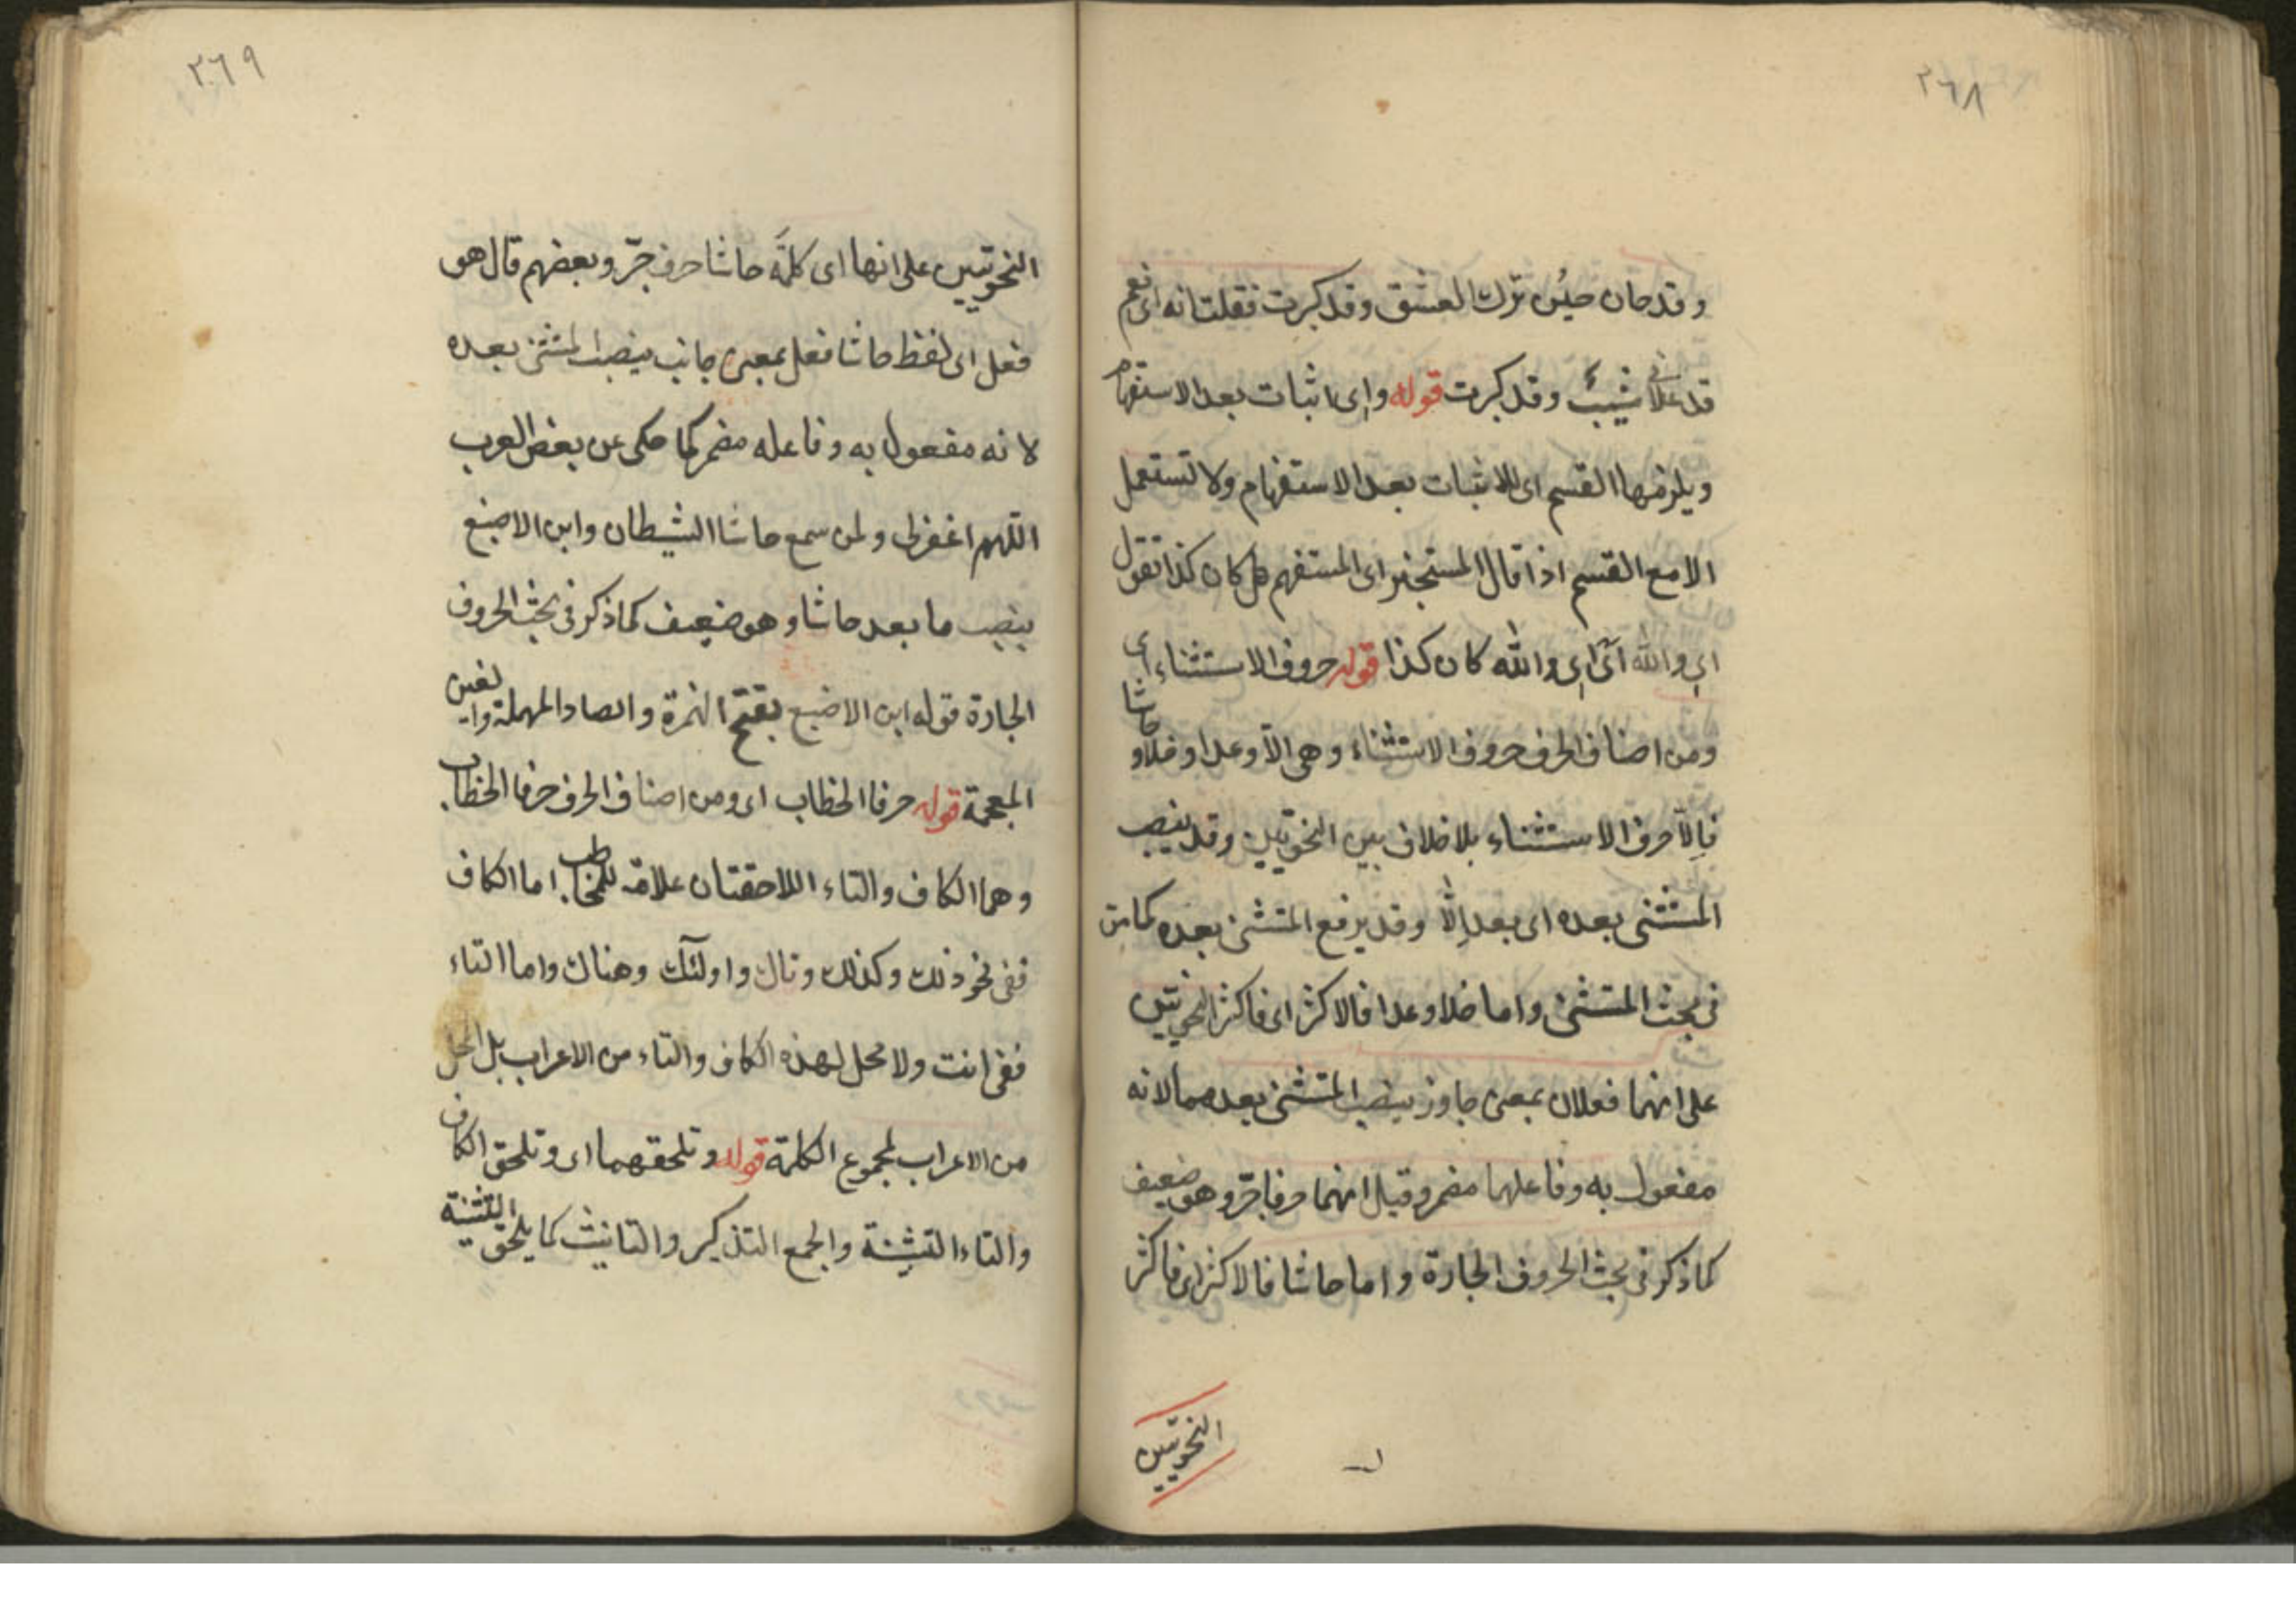 ٢٦٨
وقد حان حينُ ترك العشق وقد كبرت فقلت انه اى نعم
قد علانى شيبٌ وقد كبرت قوله واى اثبات بعد الاستفهام
ويلزمها القسم اى للاثبات بعد الاستفهام ولا تستعمل
الا مع القسم اذا قال المستخبر اى المستفهم هل كان كذا تقول
اى والله اى اى والله كان كذا قوله حروف الاستثناء اى
ومن اصناف الحرف حروف الاستثناء وهى الا وعدا وخلا وحاشا
فالا حرف الاستثناء بلا خلاف بين النحويين وقد ينصب
المستثنى بعده اى بعد إلا وقد يرفع المستثنى بعده كما مرّ
فى بحث المستثنى واما خلا وعدا فالاكثر اى فاكثر النحويين
على انهما فعلان بمعنى جاوز ينصب المستثنى بعدهما لانه
مفعول به وفاعلهما مضمر وقيل انهما حرفا جرّ وهو ضعيف
كما ذكر فى بحث الحروف الجارة واما حاشا فالاكثر اى فاكثر
النحويين
٢٦٩
النحويين على انها اى كلمة حاشا حرف جرّ وبعضهم قال هو
فعل اى لفظ حاشا فعل بمعنى جانب ينصب المستثنى بعده
لانه مفعول به وفاعله مضمر كما حكى عن بعض العرب
اللهم اغفرلى ولمن سمع حاشا الشيطان وابن الاصبغ
بنصب ما بعد حاشا وهو ضعيف كما ذكر فى بحث الحروف
الجارة قوله ابن الاصبغ بفتح الهمزة والصاد المهملة والغين
المعجمة قوله حرفا الخطاب اى ومن اصناف الحرف حرفا الخطاب
وهما الكاف والتاء اللاحقتان علامة للمخاطب اما الكاف
ففى نحو ذلك وكذلك وتاك واولئك وهناك واما التاء
ففى انت ولا محل لهذه الكاف والتاء من الاعراب بل المحل
من الاعراب لمجموع الكلمة قوله وتلحقهما اى وتلحق الكاف
والتاء التثنية والجمع التذكير والتانيث كما يلحق التثنية